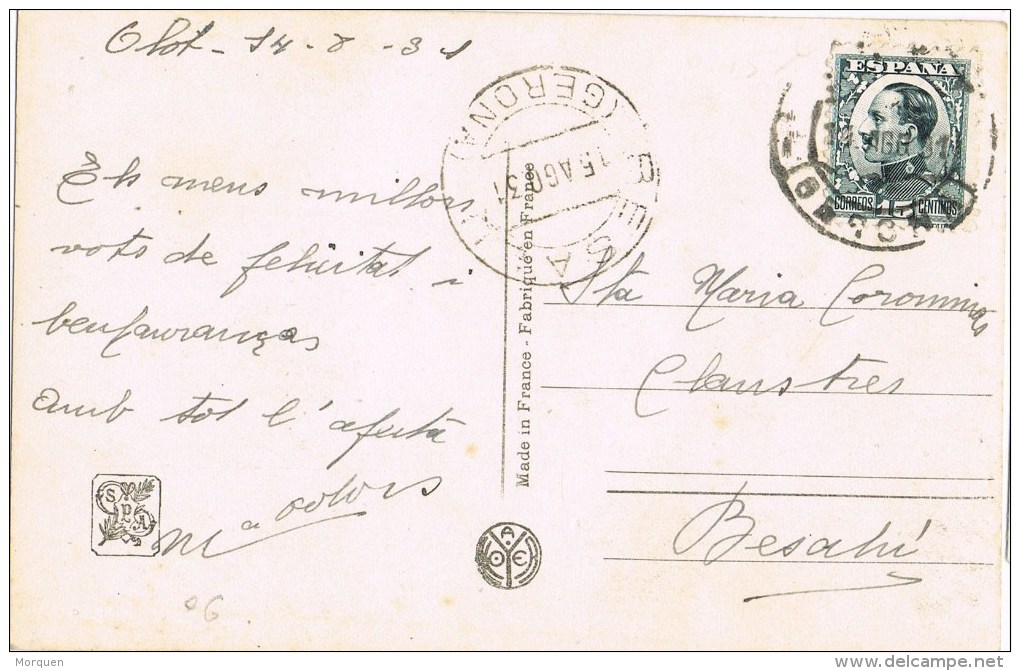 Olot - 14 - 8 - 31
Els meus millors
vots de felicitat i
benhaurançes
amb tot l'afecte
Mª Dolors
Made in France - Fabrique en France
Sta Maria Corominas
Claustres
Besalú
ESPAÑA
CORREOS
CENTIMOS
BESALU
(GERONA)
15 AGO 31
AGO 31
S P A
A
O E
06
Morquen
www.delcampe.net